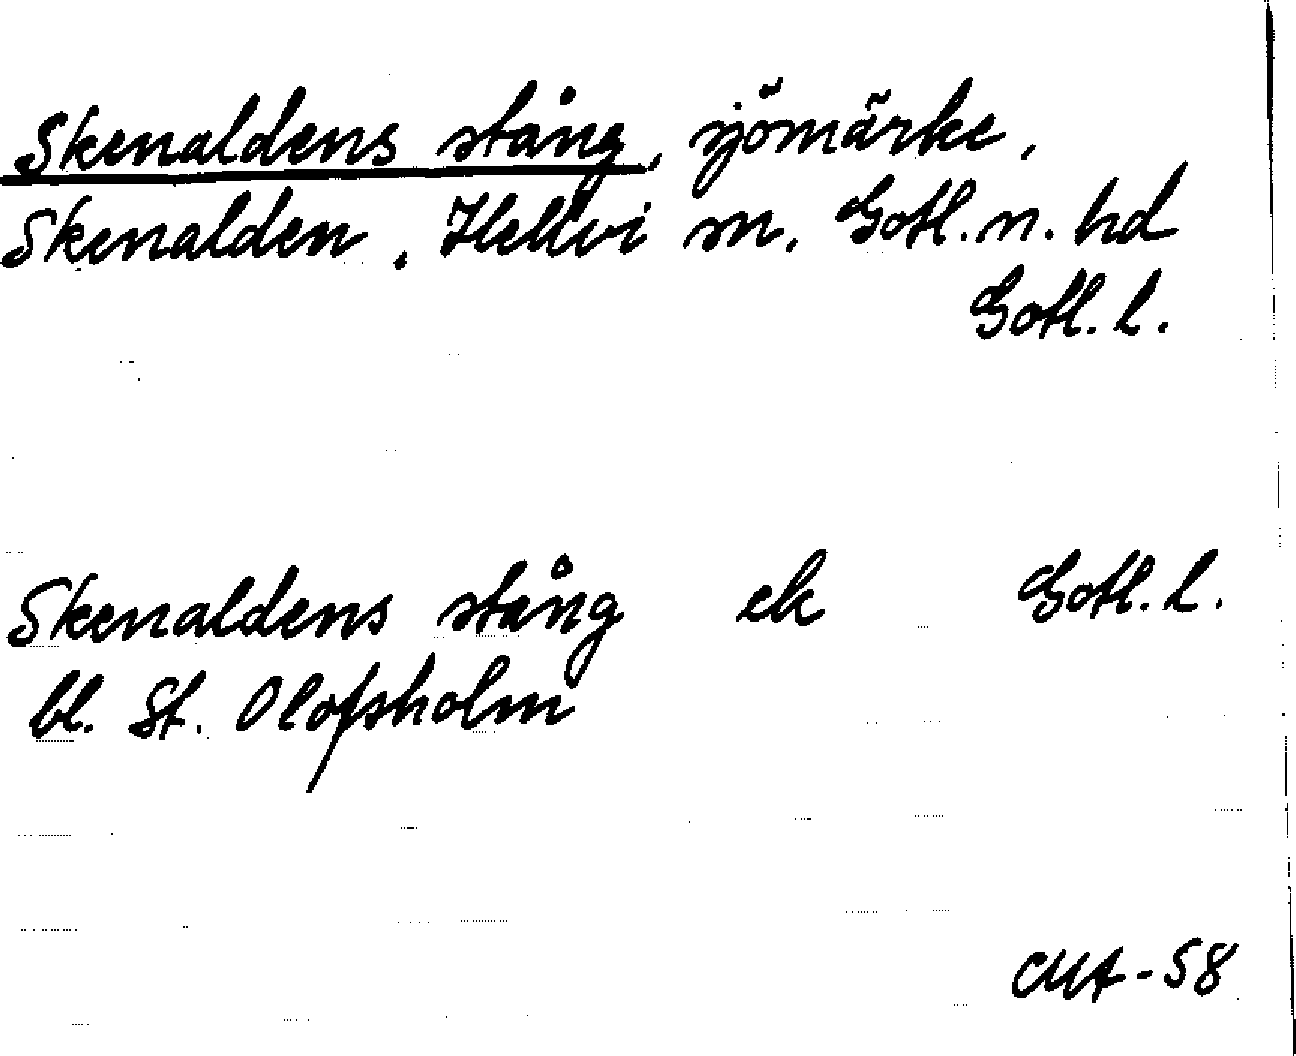 Skenaldens stång, sjömärke,
Skenalden, Hellvi sn, Gotl. n. hd
Gotl. l.
Skenaldens stång ek Gotl. l.
bl. St. Olofsholm
CMA-58